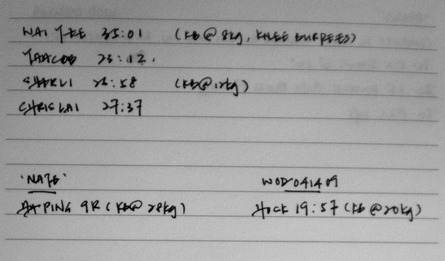 WAI YEE 35:01 (KB@8kg, KNEE BURPEES)
YAACOB 23:12.
SHERLI 26:58 (KB@12kg)
CHRIS LAI 27:37
'NATE' WOD 041409
PING 9R (KB@28kg) HOCK 19:57 (KB@20kg)